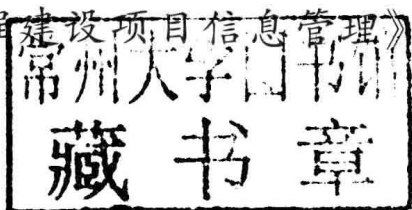 建设项目信息管理》
常州大学图书馆
藏书章